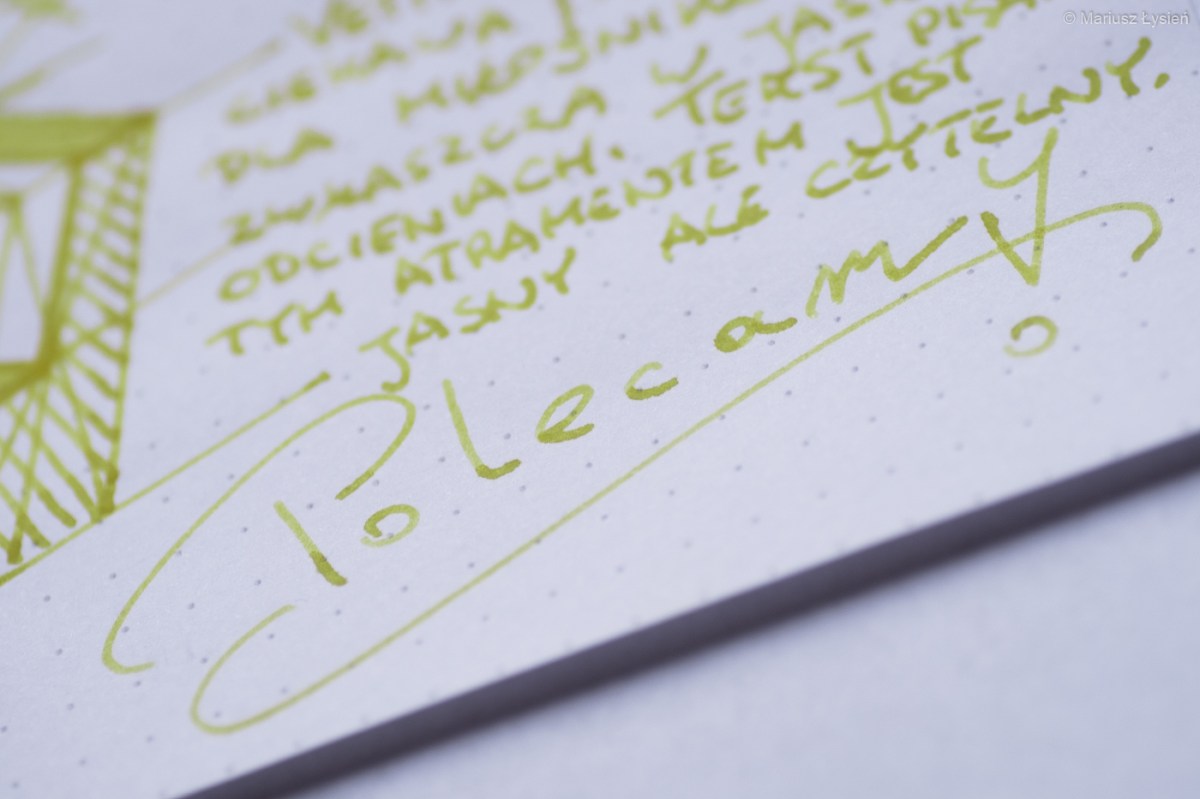 © Mariusz Łysień
CIEKAWA
DLA MIŁOŚNIKÓW
ZWŁASZCZA W JASNYCH
ODCIENIACH. TEKST PISANY
TYM ATRAMENTEM JEST
JASNY ALE CZYTELNY.
Polecamy!